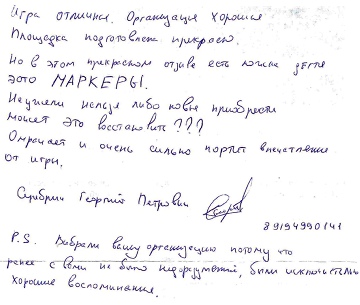 Игра отличная. Организация хорошая
Площадка подготовлена прекрасно.
Но в этом прекрасном отзыве есть ложка дегтя
это МАРКЕРЫ.
Неужели нельзя либо новые приобрести
может это восстановить???
Омрачает и очень сильно портит впечатление
от игры.
Серебрин Георгий Петрович
89194990141
P.S. Выбрали вашу организацию потому что
ранее с вами не было недоразумений, были исключительно
хорошие воспоминания.